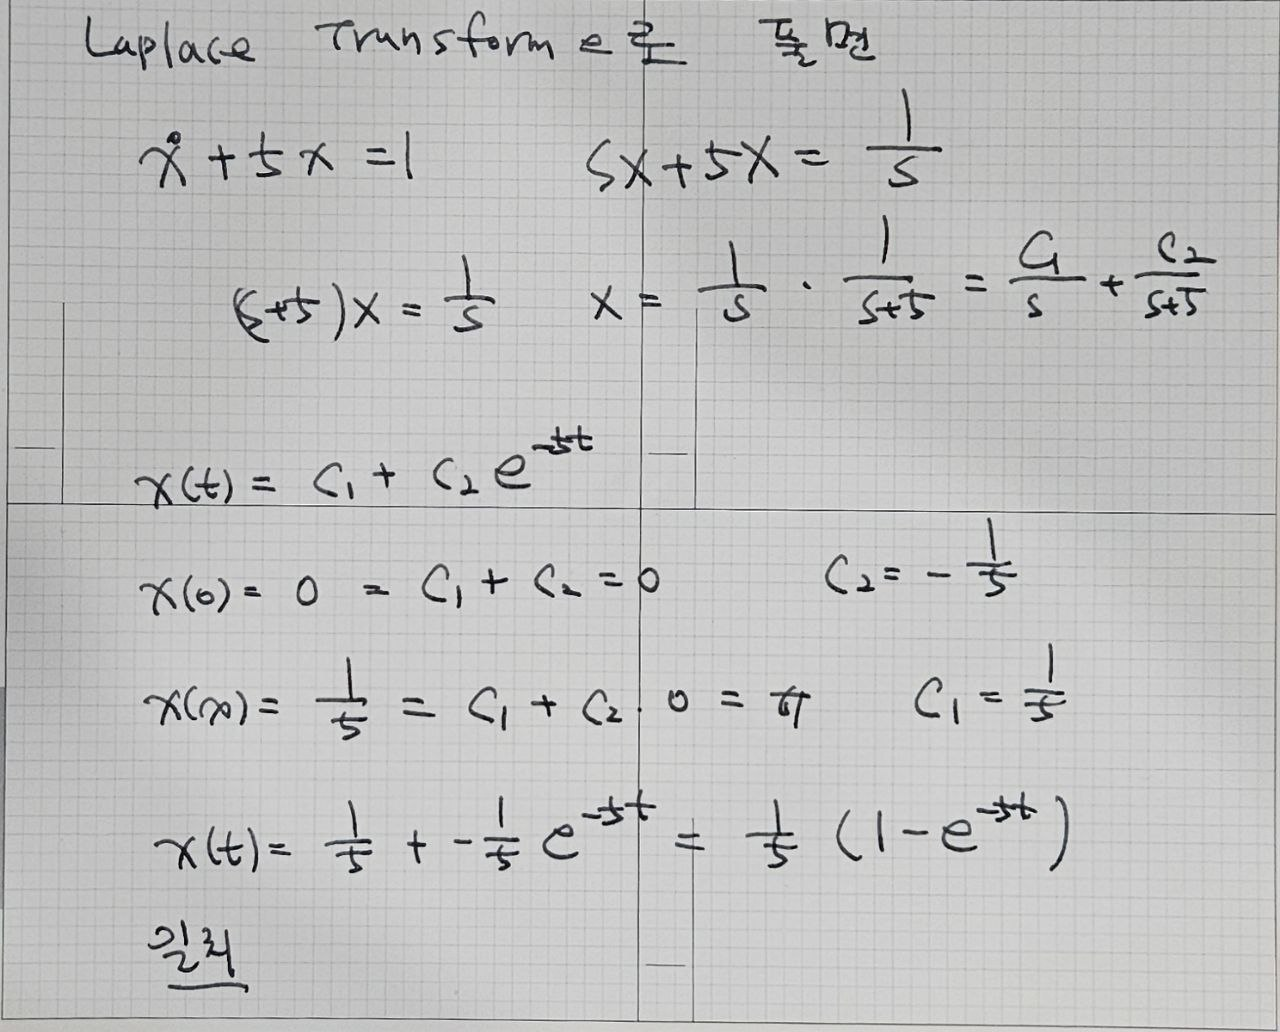 Laplace Transform으로 풀면
ẋ + 5x = 1   sX + 5X = 1/s
(s+5)X = 1/s   X = 1/s · 1/(s+5) = C₁/s + C₂/(s+5)
x(t) = C₁ + C₂ e^(-5t)
x(0) = 0 = C₁ + C₂ = 0   C₂ = -1/5
x(∞) = 1/5 = C₁ + C₂ · 0 =   C₁ = 1/5
x(t) = 1/5 + -1/5 e^(-5t) = 1/5 (1 - e^(-5t))
일치